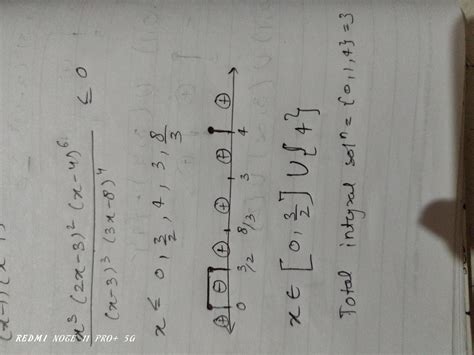 x³ (2x-3)² (x-4)⁶ / (x-3)³ (3x-8)⁴ ≤ 0
x ≤ 0, 3/2, 4, 3, 8/3
⊕ ⊖ ⊕ ⊕ ⊕ ⊕
0 3/2 8/3 3 4
x ∈ [0, 3/2] ∪ {4}
Total integral solⁿ = {0,1,4} = 3
REDMI NOTE 11 PRO+ 5G